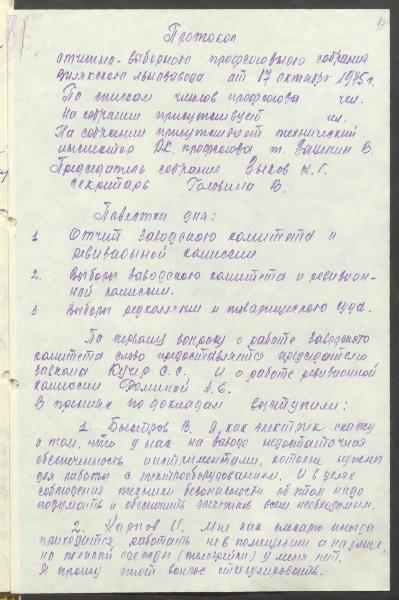 Протокол
отчетно-выборного профсоюзного собрания
льнозавода от 17 октября 1975 г.
По спискам членов профсоюза чел.
На собрании присутствует чел.
На собрании присутствует технический
инспектор профсоюза т. В.
Председатель собрания Зыков И. Г.
секретарь Головина В.
Повестка дня:
1 Отчет заводского комитета и
ревизионной комиссии
2. Выборы заводского комитета и ревизион-
ной комиссии.
3 Выборы редколлегии и товарищеского суда.
По первому вопросу о работе заводского
комитета слово предоставляется председателю
завкома С.С. и о работе ревизионной
комиссии Фоминой А.Е.
В прениях по докладам выступили:
1. Быстров В. Я, как электрик скажу
о том, что у нас на заводе недостаточная
обеспеченность инструментами, которые нужны
для работы с электрооборудованием. И в целях
соблюдения техники безопасности об этом надо
подумать и обеспечить электриков всем необходимым.
2. Карпов И. Мне как слесарю иногда
приходится работать не в помещении а на улице
но теплой одежды (телогрейки) у меня нет.
Я прошу этот вопрос